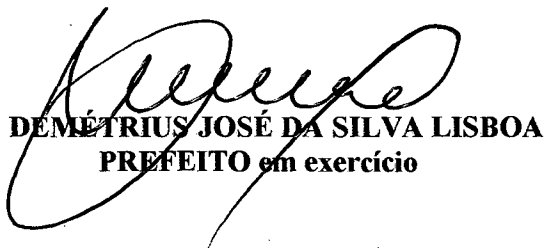 DEMÉTRIUS JOSÉ DA SILVA LISBOA
PREFEITO em exercício